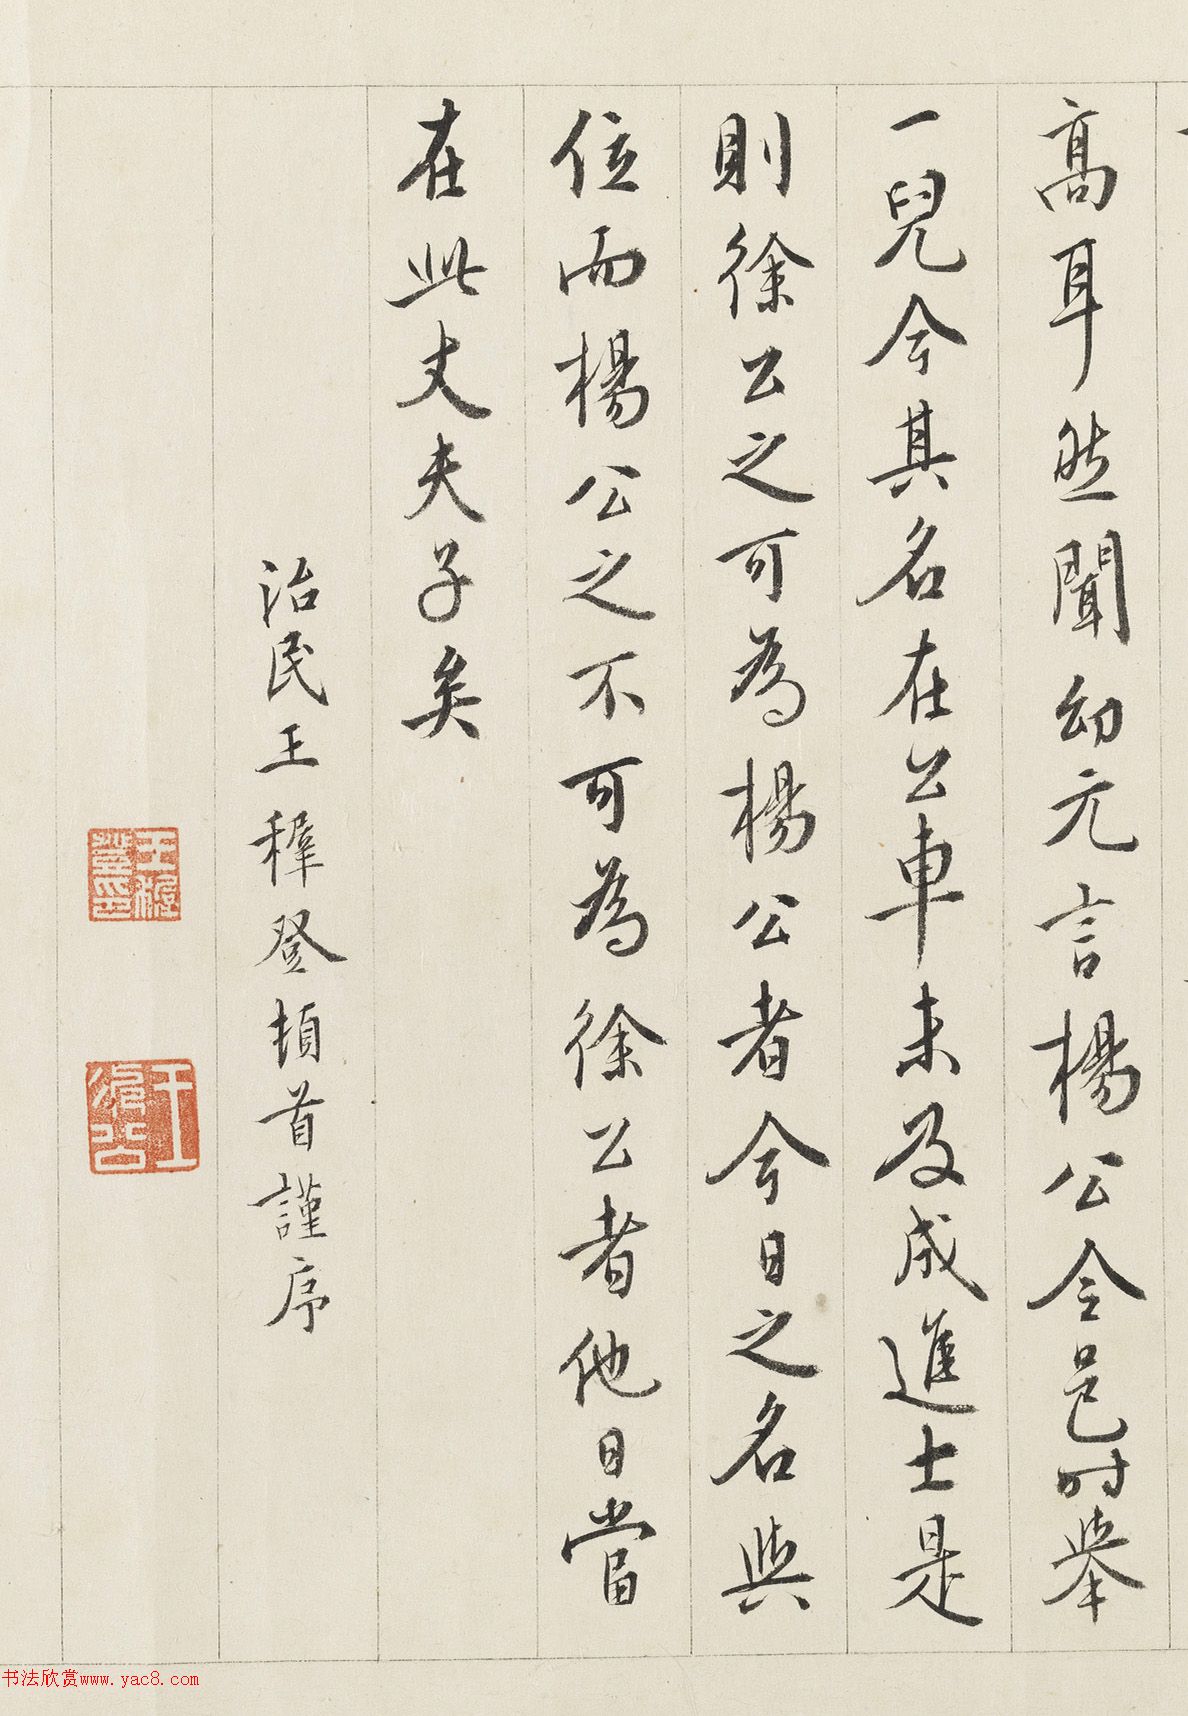 高耳然聞幼元言楊公令邑时舉
一兒今其名在公車未及成進士是
則徐公之可為楊公者今日之名與
位而楊公之不可為徐公者他日當
在此丈夫子矣
治民王穉登頓首謹序
王穉登印
王伯穀
书法欣赏www.yac8.com